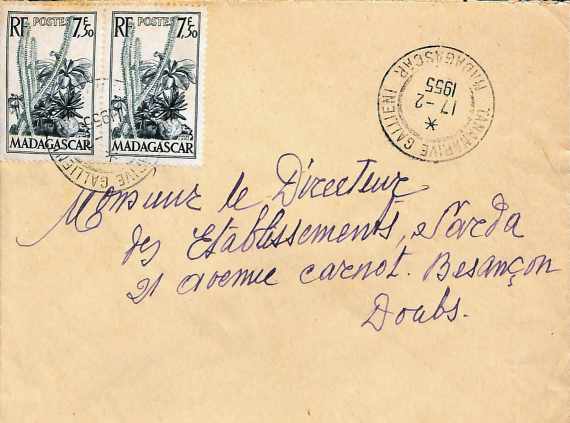 RF POSTES 7,50 F
MADAGASCAR
RF POSTES 7,50 F
MADAGASCAR
TANANARIVE GALLIENI
MADAGASCAR
17-2
1955
Monsieur le Directeur
des Etablissements, Sarda
21 avenue Carnot. Besançon
Doubs.